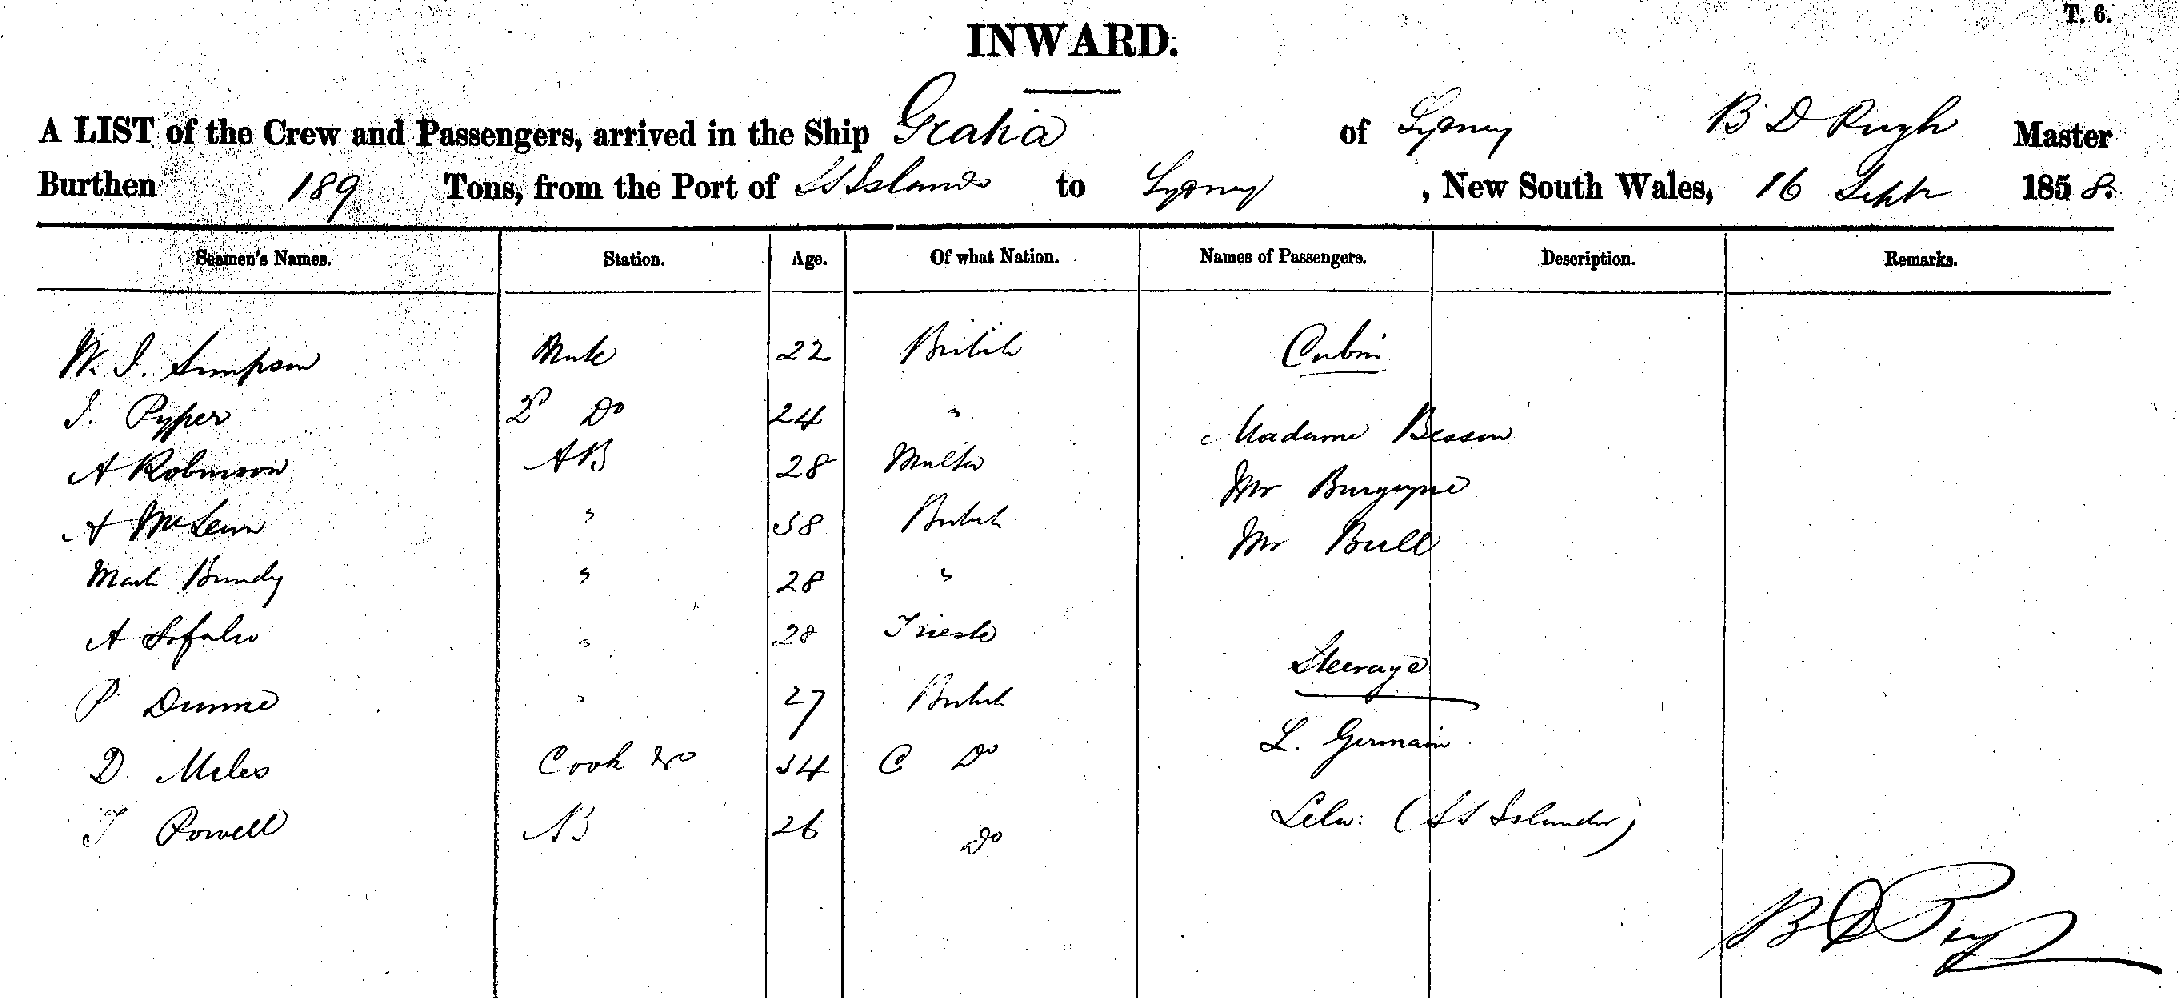 T. 6.
INWARD.
A LIST of the Crew and Passengers, arrived in the Ship Gratia of Sydney B D Pugh Master
Burthen 189 Tons, from the Port of SS Islands to Sydney , New South Wales, 16 Septr 1858.
Seamen's Names. Station. Age. Of what Nation. Names of Passengers. Description. Remarks.
W. J. Simpson Mate 22 British Cabin
J. Pyper 2d Do 24 "
Madame Besson
A Robinson AB 28 Malta
Mr Burgoyne
A McLean " 38 British
Mr Bull
Mark Bundy " 28 "
A " 28 Trieste
Steerage
P Dunne " 27 British
L. Germain
D. Miles Cook &c 34 C Do
Lela: (SS Islander)
T Powell AB 26 Do
B D Pugh